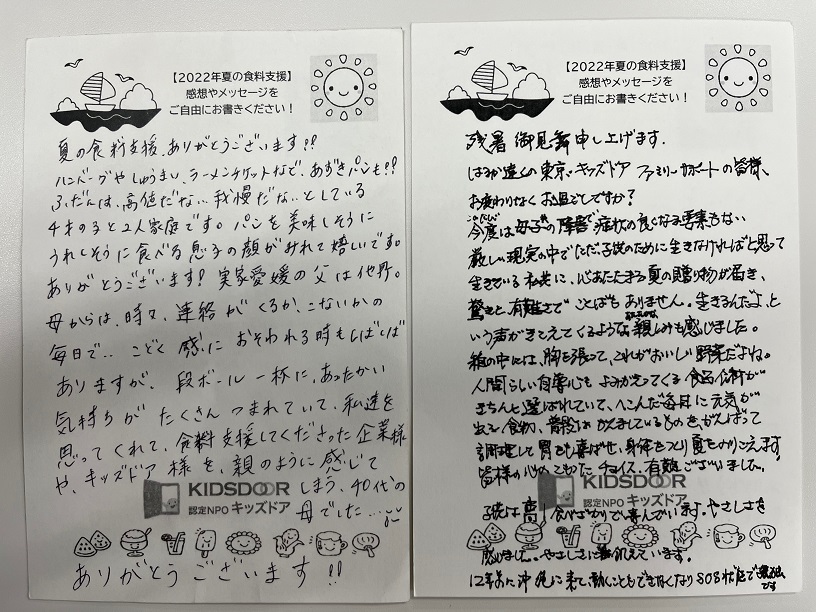 【2022年夏の食料支援】
感想やメッセージを
ご自由にお書きください！
夏の食料支援、ありがとうございます!!
ハンバーグやしゅうまい、ラーメンチケットなど、あずきパンも!!
ふだんは、高価だな…我慢だな…としている
4才の子と2人家庭です。パンを美味しそうに
うれしそうに食べる息子の顔がみれて嬉しいです。
ありがとうございます！実家愛媛の父は他界。
母からは、時々、連絡がくるか、こないかの
毎日で… こどく感におそわれる時もしばしば
ありますが、段ボール一杯に、あったかい
気持ちがたくさんつまれていて、私達を
思ってくれて、食料支援してくださった企業様
や、キッズドア様を、親のように感じて
しまう、40代の
母でした…
KIDSDOOR
認定NPO キッズドア
ありがとうございます!!
【2022年夏の食料支援】
感想やメッセージを
ご自由にお書きください！
残暑御見舞申し上げます。
はるか遠くの東京、キッズドア ファミリーサポートの皆様、
お変わりなくお過ごしですか？
今度は母子の障害で症状の良くなる要素もない
厳しい現実の中でただ、子供のために生きなければと思って
生きている私共に、心あたたまる夏の贈り物が届き、
驚きと、有難さで ことばもありません。生きるんだよ、と
いう声がきこえてくるような 親しみも感じました。
箱の中には、胸を張って、これがおいしい野菜だよね。
人間らしい自尊心も よみがえってくる 食品 が
きちんと選ばれていて、へこんだ毎日に元気が
出て 食物、 がんばって
調理して 胃を喜ばせ、身体をつくり夏をのりこえます
皆様の心のこもったチョイス、有難うございました。
KIDSDOOR
認定NPO キッズドア
子供は 食べばかりで喜んでいます。やさしさを
感じました。やさしさに飢えています。
12年前に沖縄に来て、働くこともできなくなりSOS状態で
です